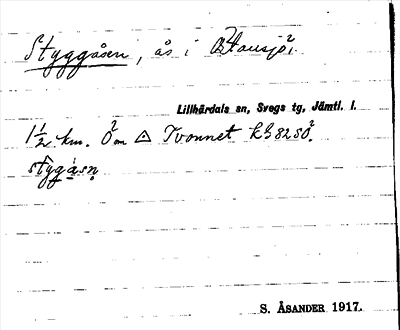 Styggåsen, ås i Östansjö.
Lillhärdals sn, Svegs tg, Jämtl. l.
1½ km. Ö om △ Tvonnet
styggåsn̥
S. ÅSANDER 1917.